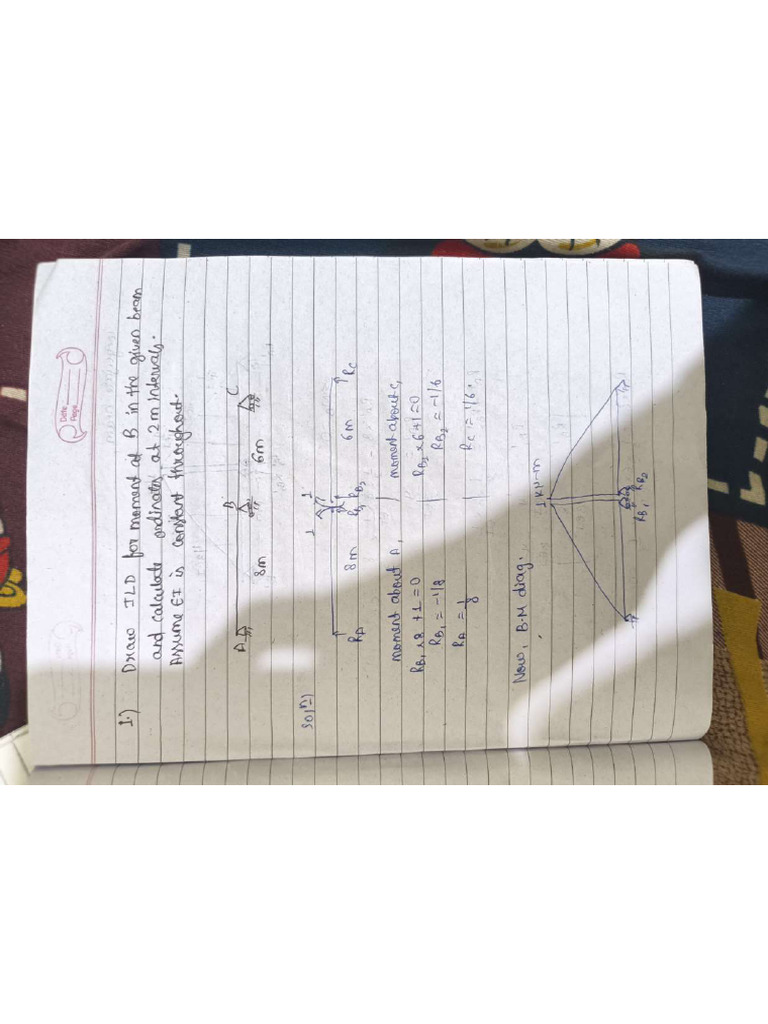 Date
Page
1.) Draw ILD for moment at B in the given beam
and calculate ordinates at 2m intervals.
Assume EI is constant throughout.
A B C
8m 6m
sol(n)
1 1
RA 8m RB1 RB2 6m RC
moment about A,
RB1 × 8 + 1 = 0
RB1 = -1/8
RA = 1/8
moment about C,
RB2 × 6 + 1 = 0
RB2 = -1/6
RC = 1/6.
Now, B.M diag.
1 KN-m
RB1 RB2